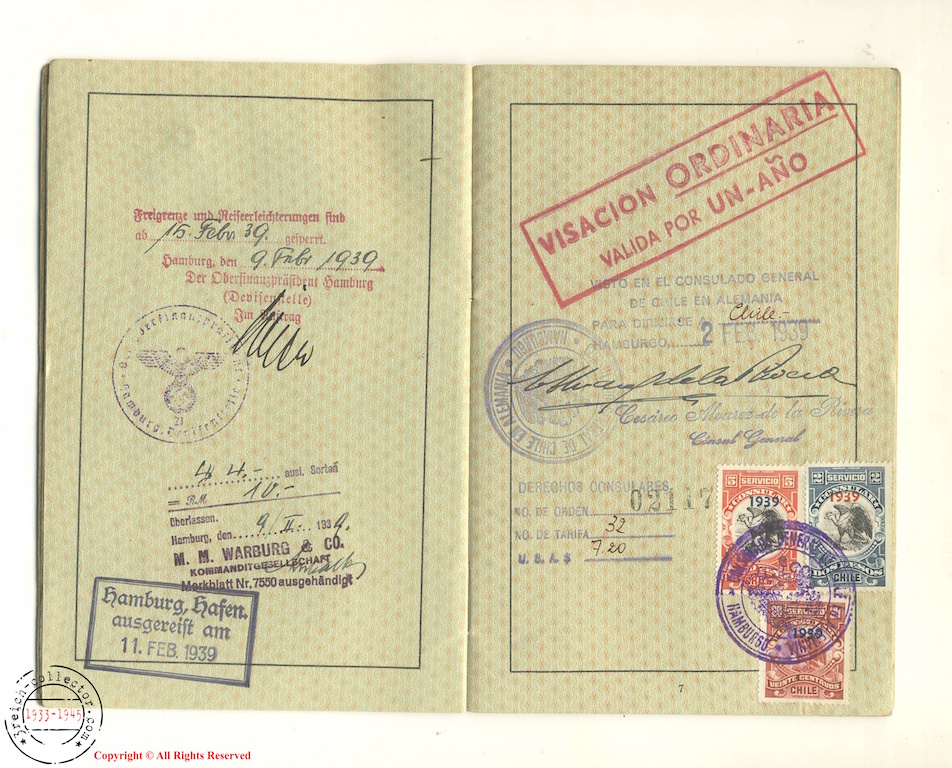 Freigrenze und Reiseerleichterungen sind
ab 15. Febr. 39. gesperrt.
Hamburg, den 9. Febr 1939
Der Oberfinanzpräsident Hamburg
(Devisenstelle)
Im Auftrag
Hamburg, Devisenstelle
21
44.- ausl. Sorten
= RM 10.-
überlassen.
Hamburg, den 9. II. 1939.
M. M. WARBURG & CO.
KOMMANDITGESELLSCHAFT
Merkblatt Nr. 7550 ausgehändigt
Hamburg, Hafen.
ausgereist am
11. FEB. 1939
VISACION ORDINARIA
VALIDA POR UN-AÑO
VISTO EN EL CONSULADO GENERAL
DE CHILE EN ALEMANIA
PARA DIRIJIRSE A Chile.-
HAMBURGO, 2 FEB 1939
DE CHILE EN ALEMANIA
HAMBURGO
Cesáreo Alvarez de la Rivera
Cónsul General
DERECHOS CONSULARES
NO. DE ORDEN 02117
NO. DE TARIFA 32
U. S. A. $ 7.20
5 SERVICIO 5
CONSULAR
1939
2 SERVICIO 2
CONSULAR
1939
DOS PESOS
CHILE
HAMBURGO
1939
VEINTE CENTAVOS
CHILE
7
3reich-collector.com
1933-1945
Copyright © All Rights Reserved